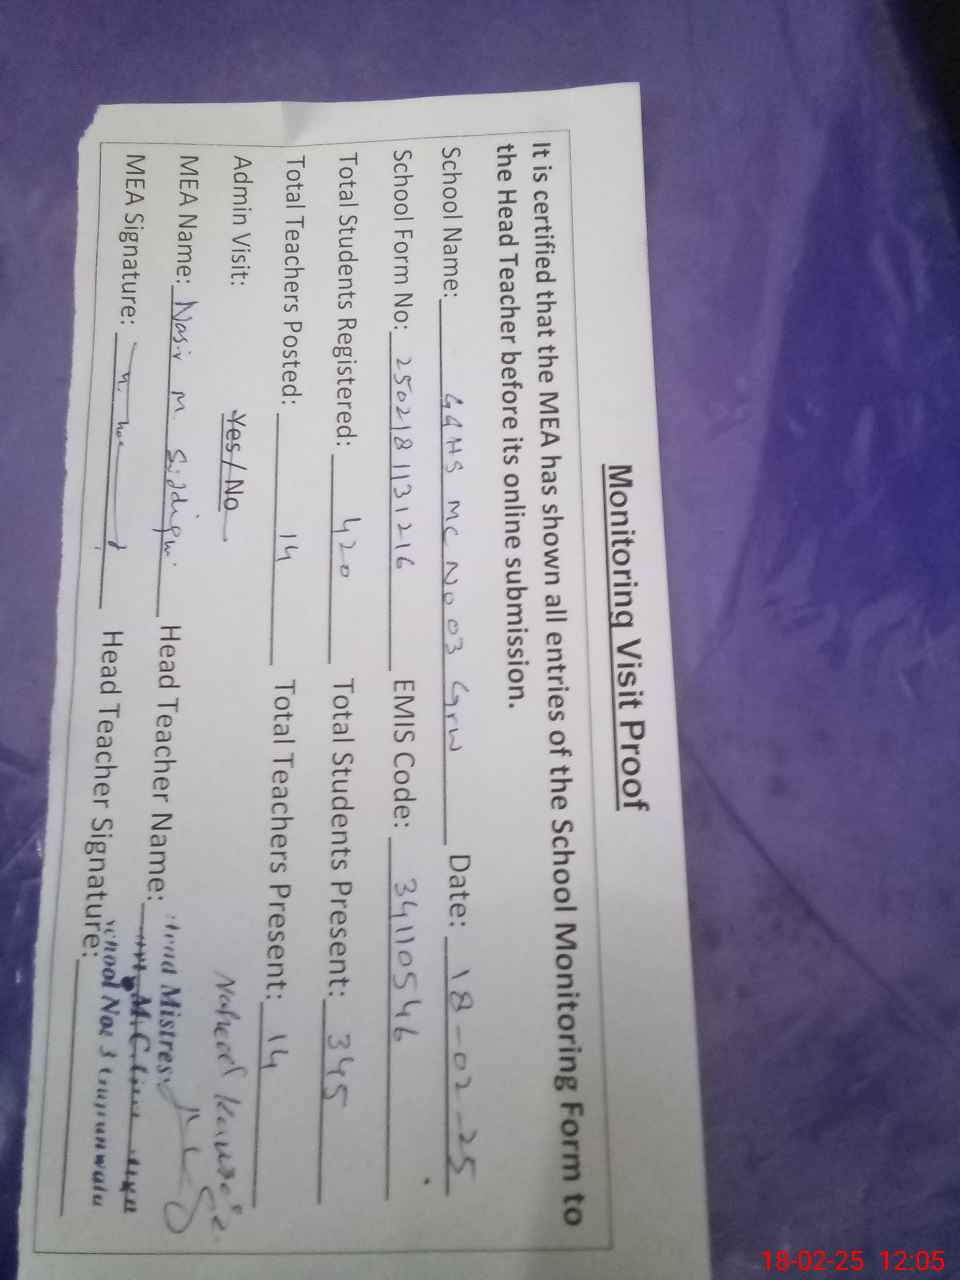 Monitoring Visit Proof
It is certified that the MEA has shown all entries of the School Monitoring Form to
the Head Teacher before its online submission.
School Name: GGHS MC No 03 Grw Date: 18-02-25
School Form No: 2502181131216 EMIS Code: 34110546
Total Students Registered: 420 Total Students Present: 345
Total Teachers Posted: 14 Total Teachers Present: 14
Admin Visit: Yes / No
MEA Name: Nasir M Siddiqui Head Teacher Name: Head Mistress
M.C.
MEA Signature: Head Teacher Signature: School No: 3 Gujranwala
18-02-25 12:05